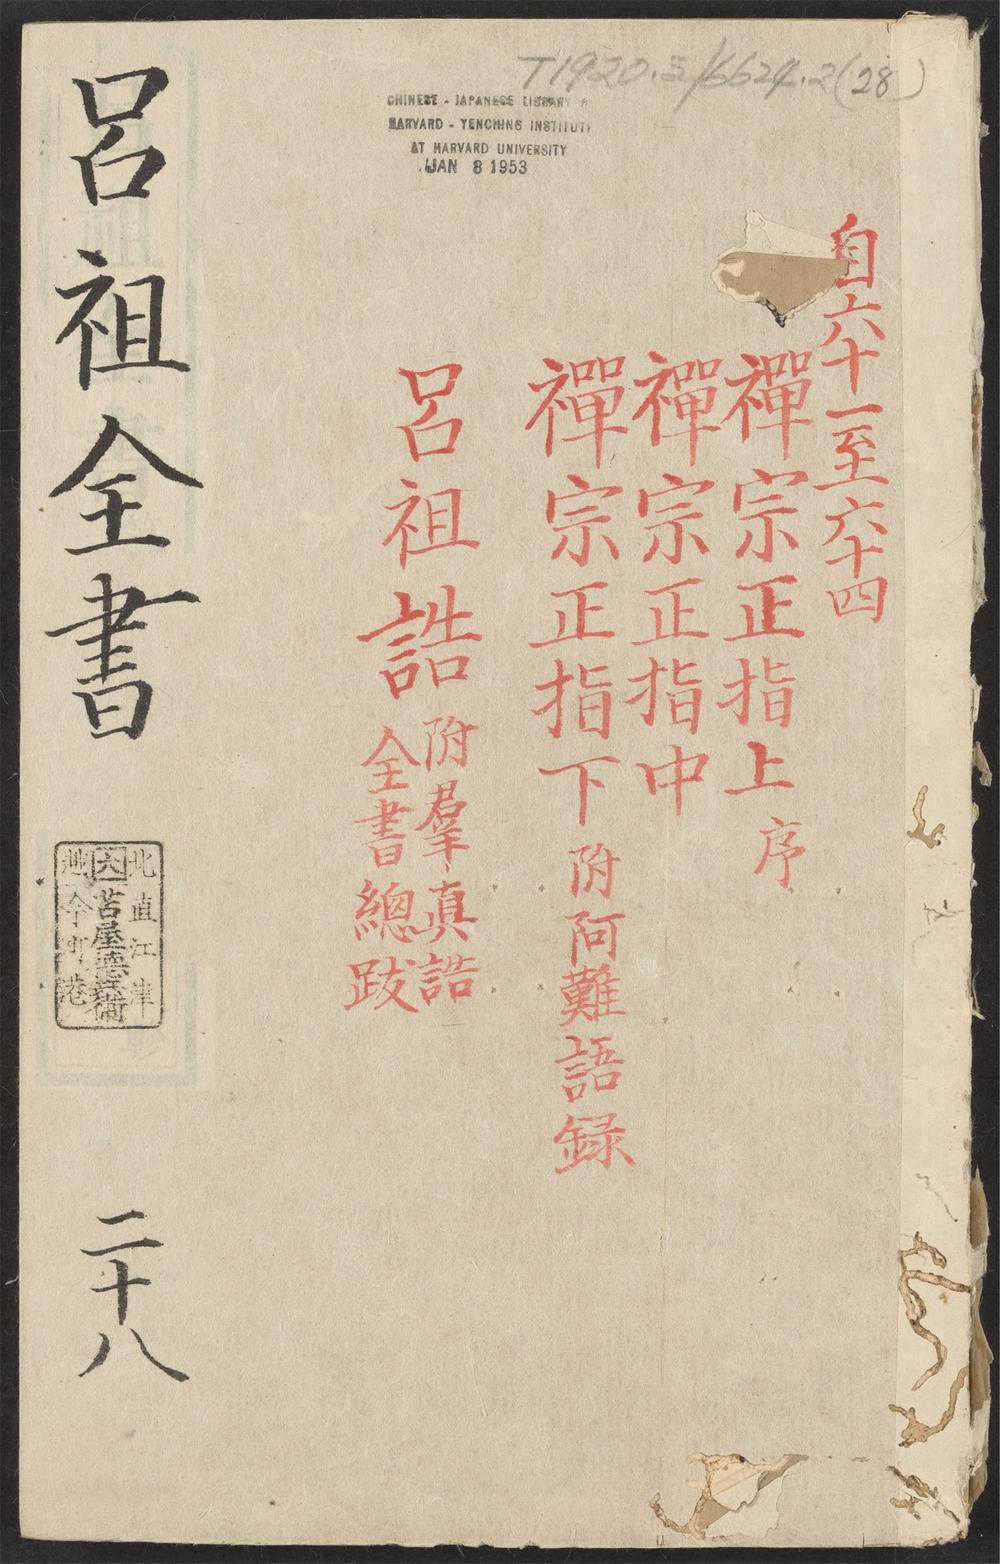 T1920.5/6624.2(28)
CHINESE - JAPANESE LIBRARY
HARVARD - YENCHING INSTITUT
AT HARVARD UNIVERSITY
JAN 8 1953
自六十一至六十四
禪宗正指上 序
禪宗正指中
禪宗正指下 附阿難語録
呂祖誥 附羣真誥
全書總跋
呂祖全書
北直江津
六 苫屋徳兵衛
越今町港
二十八